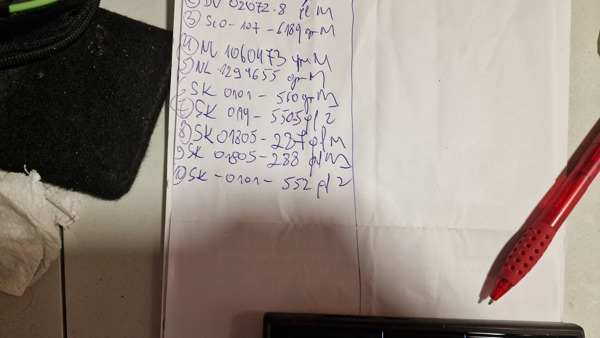 ② DV 02072-8 pl M
③ SCO-107-6189 gr M
④ NL 1060473 gr M
⑤ NL.1294655 gr M
SK 0101- 560 gr M
⑦ SK 0114- 5505 pl 2
⑧ SK 01805-237 pl M
9 SK 01805-288 pl M
⑩ SK -0101- 552 pl 2